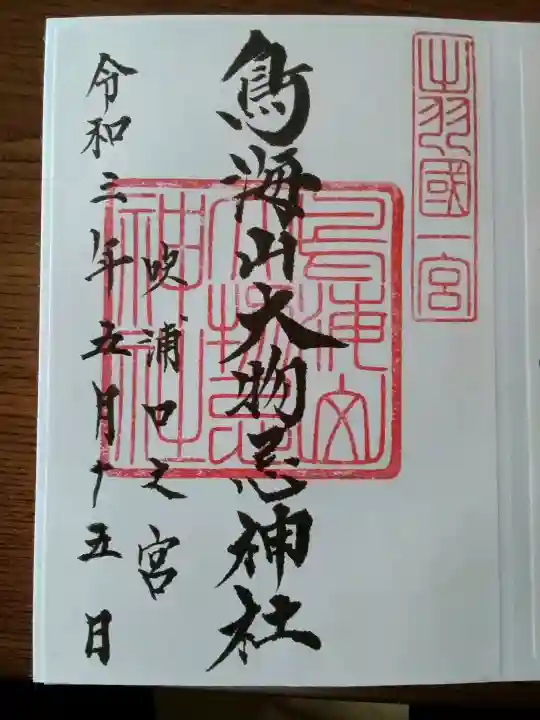 出羽國一宮
鳥海山大物忌神社
鳥海山
大物忌
神社
吹浦口之宮
令和三年五月十五日